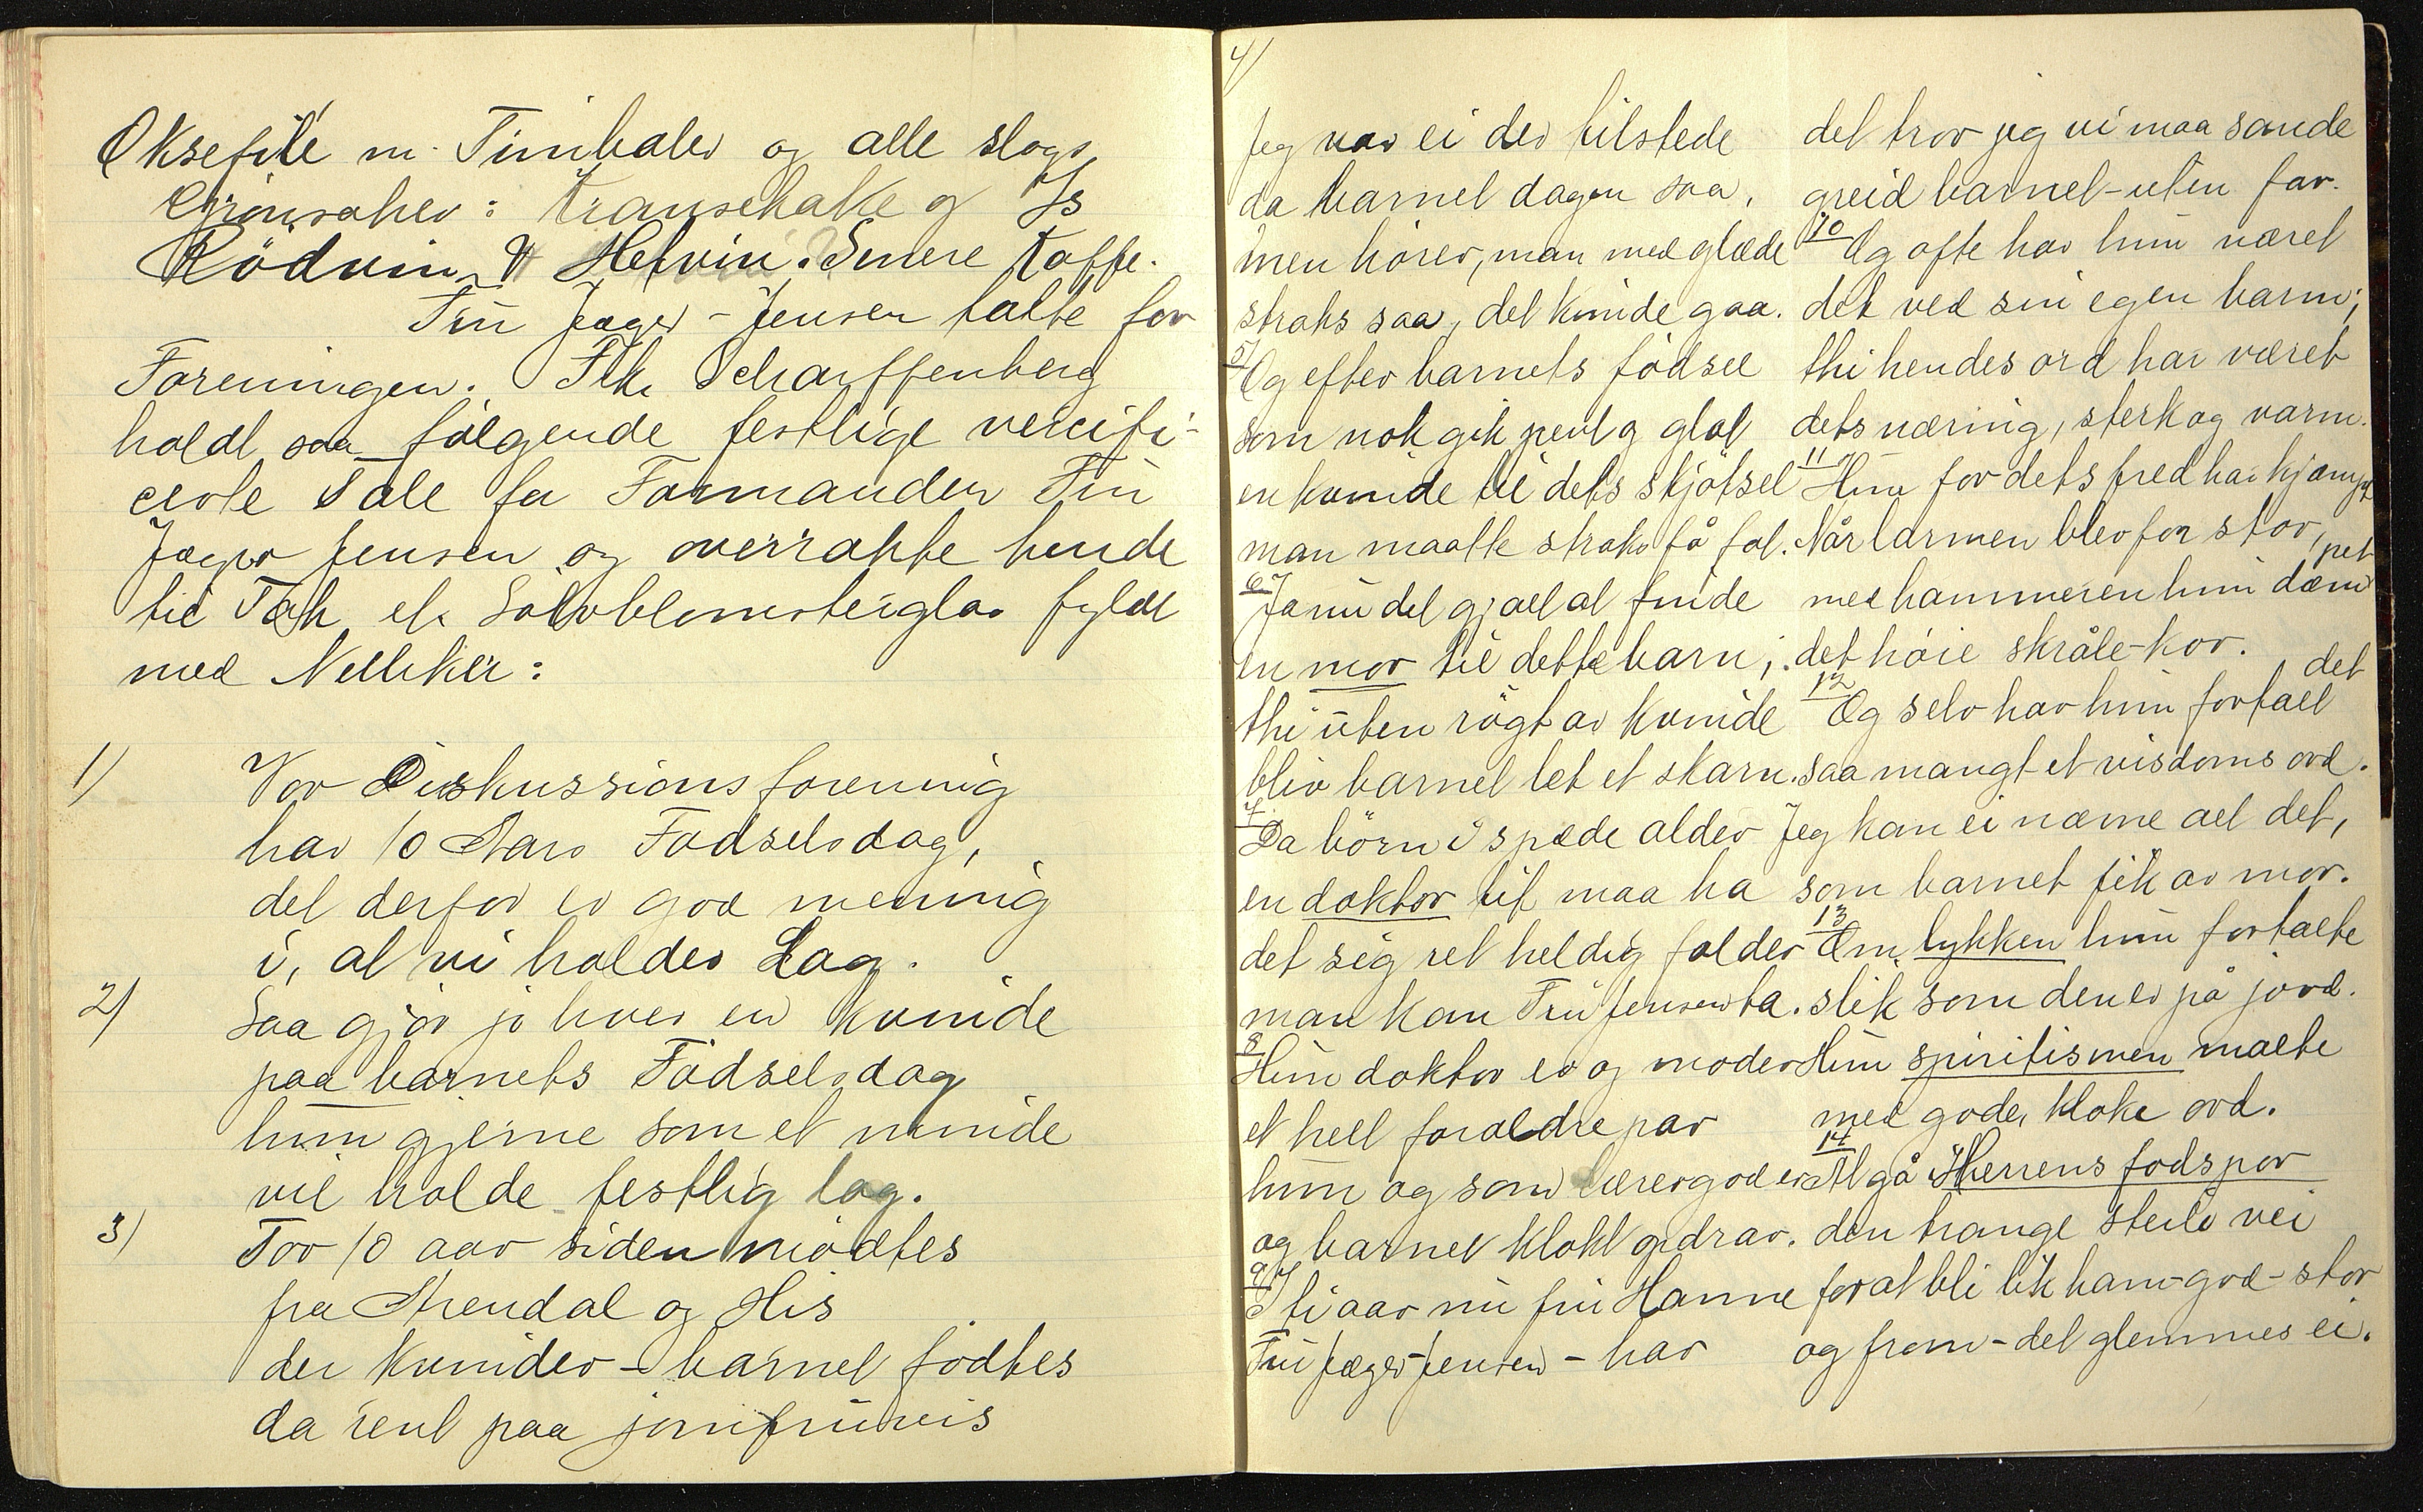 Oksefilé m. Timbaler og alle slags
Grönsaker: Kransekake og Is
Rödvin & Hetvin. Senere Kaffe.
Frü Jæger-Jensen talte for
Foreningen. Frk. Scharffenberg
holdt saa følgende festlige vercifi-
certe Tale for Formanden Frü
Jæger Jensen og overrakte hende
til Tak et Sölvblomsterglas fyldt
med Nelliker:
1) Vor Diskussionsforening
har 10 Aars Födselsdag,
det derfor er god mening
i, at vi holder Lag.
2) Saa gjör jo hver en kvinde
paa barnets Födselsdag
hün gjerne som et minde
vil holde festlig lag.
3) For 10 aar siden mödtes
fra Arendal og His
der kvinder-barnet födtes
da rent paa jomfrüvis
4/
Jeg var ei der tilstede
da barnet dagen saa,
men hörer, man med glæde
straks saa, det künde gaa.
5/
Og efter barnets födsel
som nok gik pent og glat
en kvinde til dets skjötsel
man maatte straks få fat.
6/
Ja nü det gjaldt at finde
en mor til dette barn;
thi üten rögt av kvinde
blir barnet let et skarn.
7/
Da börn i späde alder
en doktor tit maa ha
det sig ret heldig falder
man kan Frü Jensen ta.
8/
Hün doktor er og moder
et helt forældrepar
hün og som lærer god er
og barnet klokt opdrar.
9/
I ti aar nü frü Hanne
Frü Jæger-Jensen - har
det tror jeg vi maa sande
greid barnet-uten far.
10
Og ofte har hün næret
det ved sin egen barm;
thi hendes ord har været
dets næring, sterk og varm.
11
Hün for dets fred har kjæmpet
Når larmen blev for stor,
med hammeren hün dæmpet
det höie skråle-kor.
12
Og selv har hün fortalt det
saa mangt et visdoms ord.
Jeg kan ei nævne alt det,
som barnet fik av mor.
13
Om lykken hün fortalte
slik som den er på jord.
Hün spiritismen malte
med gode, kloke ord.
14
At gå i Herrens fodspor
den trange steile vei
for at bli lik ham-god-stor
og from-det glemmes ei.